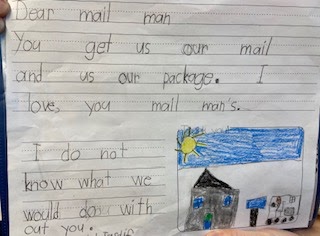 Dear mail man
You get us our mail
and us our package. I
love, you mail man's.
I do not
know what we
would do with
out you.